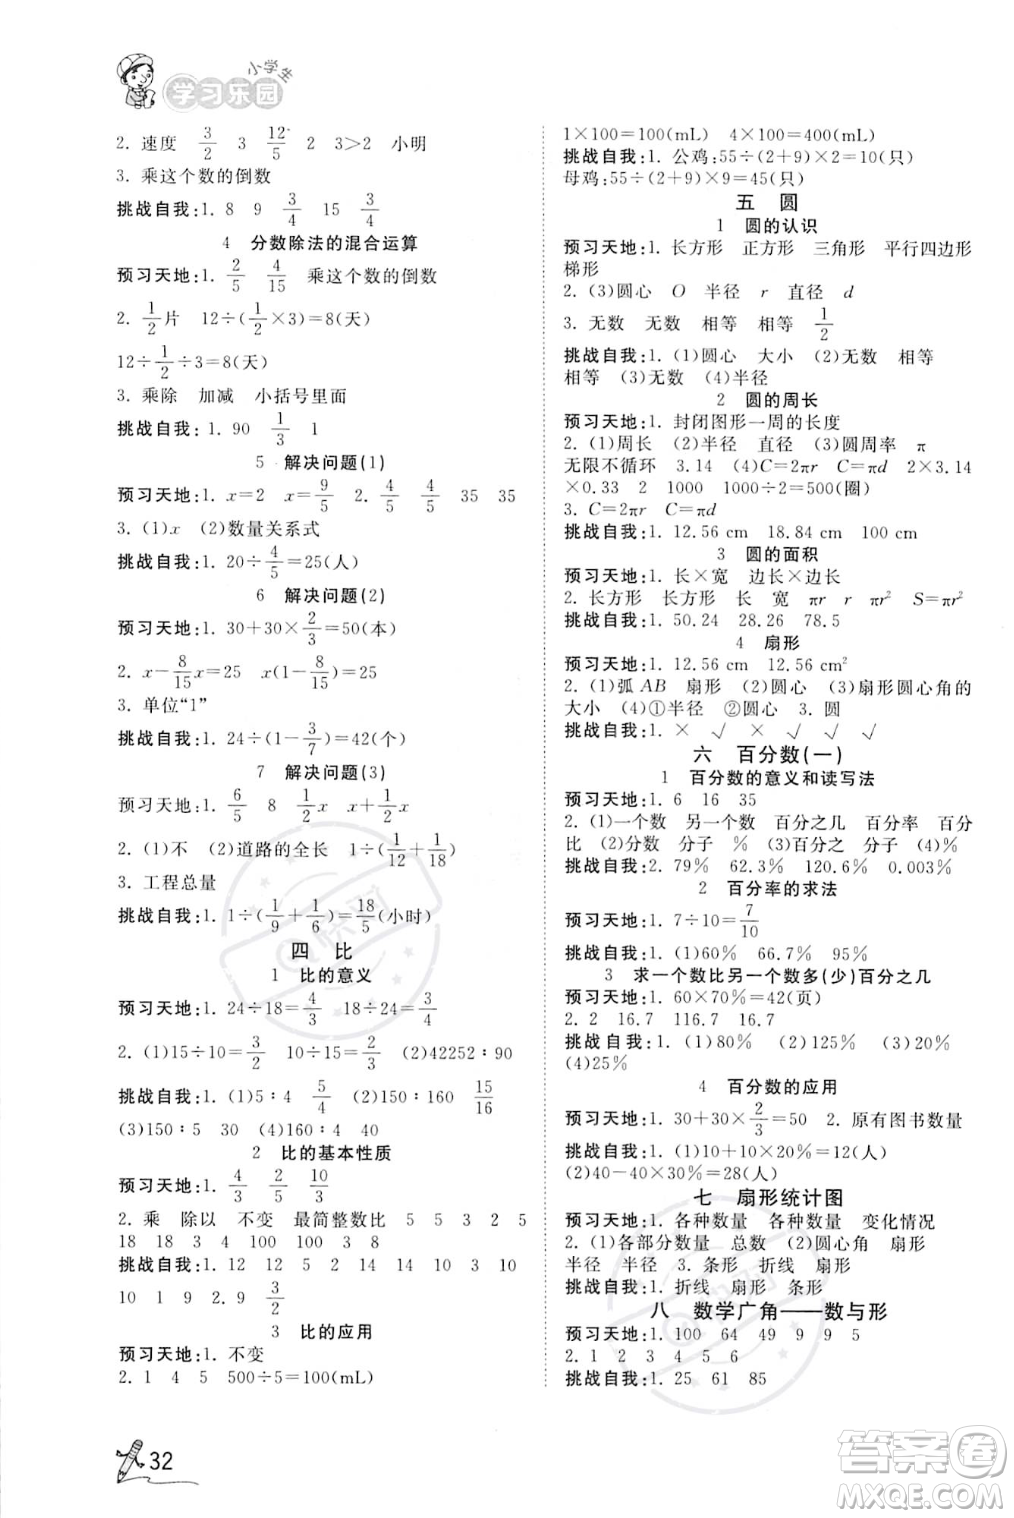 小学生
学习乐园
2. 速度 3/2 3 12/5 2 3>2 小明
3. 乘这个数的倒数
挑战自我:1. 8 9 3/4 15 3/4
4 分数除法的混合运算
预习天地:1. 2/5 4/15 乘这个数的倒数
2. 1/2片 12÷(1/2×3)=8(天)
12÷1/2÷3=8(天)
3. 乘除 加减 小括号里面
挑战自我:1. 90 1/3 1
5 解决问题(1)
预习天地:1. x=2 x=9/5 2. 4/5 4/5 35 35
3. (1)x (2)数量关系式
挑战自我:1. 20÷4/5=25(人)
6 解决问题(2)
预习天地:1. 30+30×2/3=50(本)
2. x-8/15x x(1-8/15)
3. 单位“1”
挑战自我:1. 24÷(1-3/7)=42(个)
7 解决问题(3)
预习天地:1. 6/5 8 1/2x x+1/2x
2. (1)不 (2)道路的全长 1÷(1/12+1/18)
3. 工程总量
挑战自我:1. 1÷(1/9+1/6)=18/5(小时)
四 比
1 比的意义
预习天地:1. 24÷18=4/3 18÷24=3/4
2. (1)15÷10=3/2 10÷15=2/3 (2)42252∶90
挑战自我:1. (1)5∶4 5/4 (2)150∶160 15/16
(3)150∶5 30 (4)160∶4 40
2 比的基本性质
预习天地:1. 4/3 2/3 10/3
2. 乘 除以 不变 最简整数比 5 5 3 2 5
18 18 3 4 100 100 3 8
挑战自我:1. 12 12 5 2 14 10 3 10
10 1 9 2. 9 3/2
3 比的应用
预习天地:1. 不变
2. 1 4 5 500÷5=100(mL)
1×100=100(mL) 4×100=400(mL)
挑战自我:1. 公鸡:55÷(2+9)×2=10(只)
母鸡:55÷(2+9)×9=45(只)
五 圆
1 圆的认识
预习天地:1. 长方形 正方形 三角形 平行四边形
梯形
2. (3)圆心 O 半径 r 直径 d
3. 无数 无数 相等 相等 1/2
挑战自我:1. (1)圆心 大小 (2)无数 相等
相等 (3)无数 (4)半径
2 圆的周长
预习天地:1. 封闭图形一周的长度
2. (1)周长 (2)半径 直径 (3)圆周率 π
无限不循环 3.14 (4)C=2πr C=πd 2×3.14
×0.33 2 1000 1000÷2=500(圈)
3. C=2πr C=πd
挑战自我:1. 12.56 cm 18.84 cm 100 cm
3 圆的面积
预习天地:1. 长×宽 边长×边长
2. 长方形 长方形 长 宽 πr r πr² S=πr²
挑战自我:1. 50.24 28.26 78.5
4 扇形
预习天地:1. 12.56 cm 12.56 cm²
2. (1)弧 AB 扇形 (2)圆心 (3)扇形圆心角的
大小 (4)①半径 ②圆心 3. 圆
挑战自我:1. × √ × √ √ √
六 百分数(一)
1 百分数的意义和读写法
预习天地:1. 6 16 35
2. (1)一个数 另一个数 百分之几 百分率 百分
比 (2)分数 分子 % (3)百分之 分子 %
挑战自我:2. 79% 62.3% 120.6% 0.003%
2 百分率的求法
预习天地:1. 7÷10=7/10
挑战自我:1. (1)60% 66.7% 95%
3 求一个数比另一个数多(少)百分之几
预习天地:1. 60×70%=42(页)
2. 2 16.7 116.7 16.7
挑战自我:1. (1)80% (2)125% (3)20%
(4)25%
4 百分数的应用
预习天地:1. 30+30×2/3=50 2. 原有图书数量
挑战自我:1. (1)10+10×20%=12(人)
(2)40-40×30%=28(人)
七 扇形统计图
预习天地:1. 各种数量 各种数量 变化情况
2. (1)各部分数量 总数 (2)圆心角 扇形
半径 半径 3. 条形 折线 扇形
挑战自我:1. 折线 扇形 条形
八 数学广角——数与形
预习天地:1. 100 64 49 9 9 5
2. 1 2 3 4 5 6
挑战自我:1. 25 61 85
32
答案圈
MXQE.COM